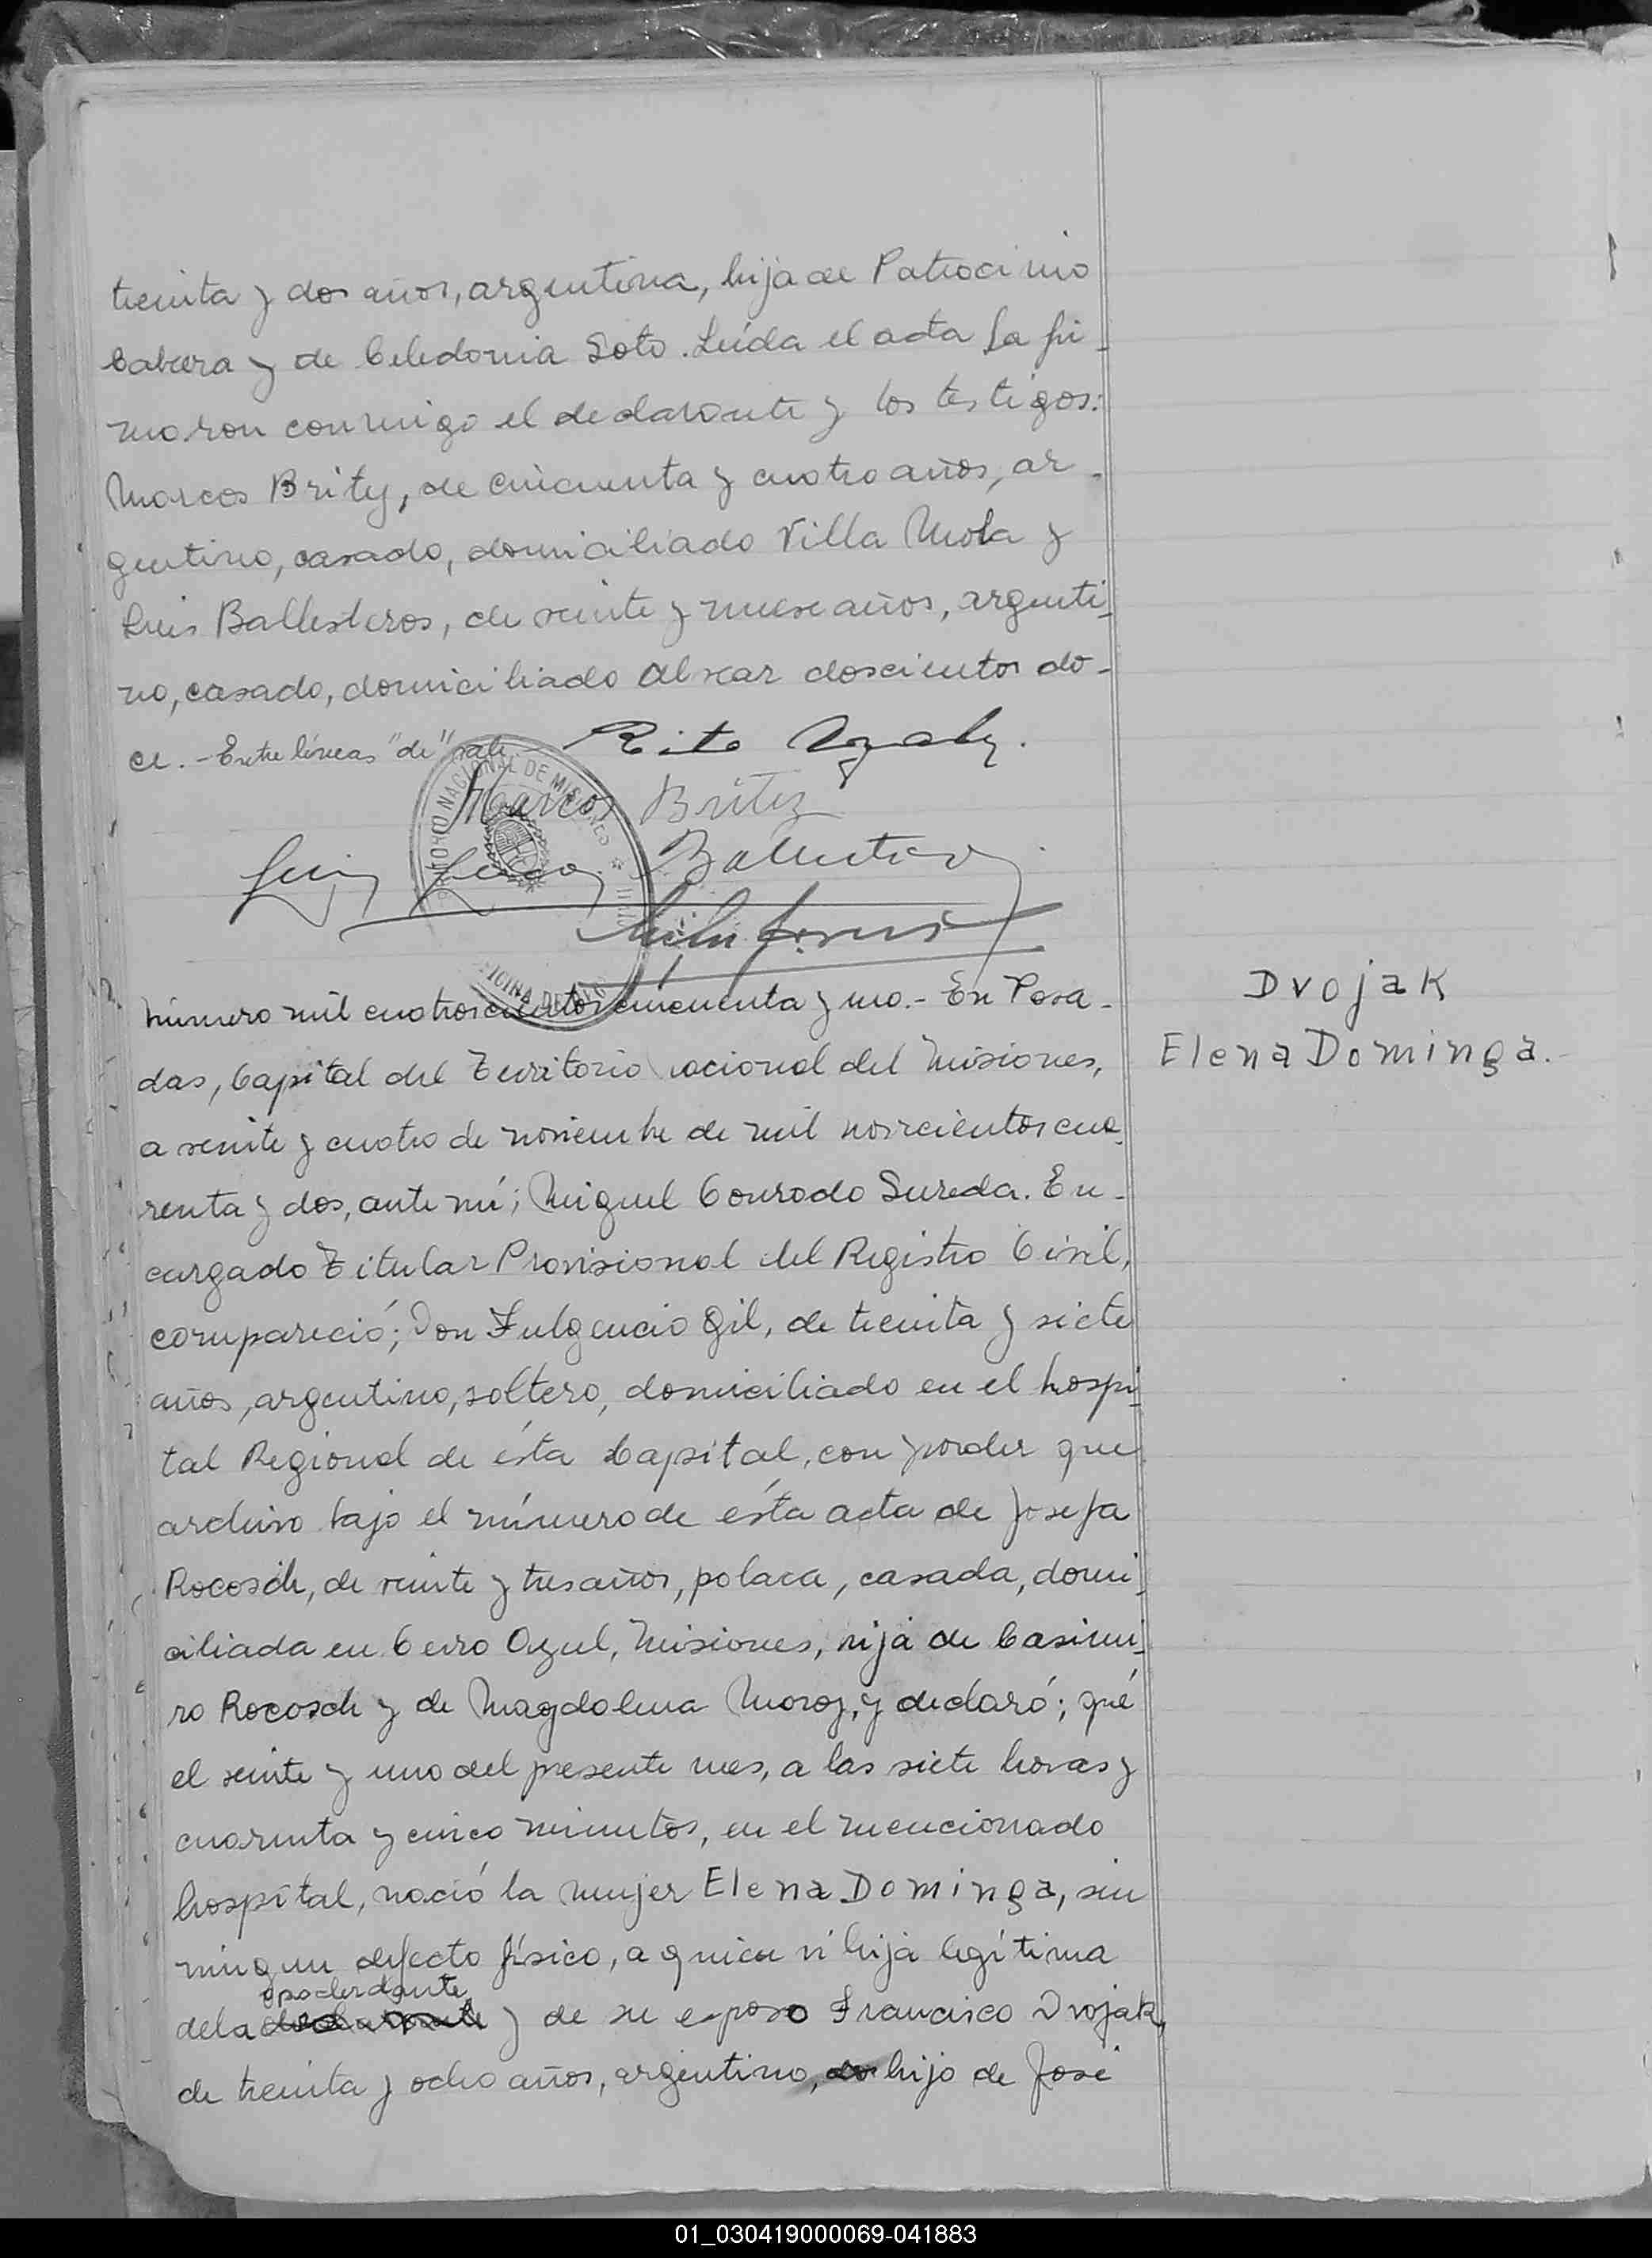 treinta y dos años, argentina, hija de Patrocinio
Cabrera y de Celedonia Soto. Leída el acta la fir-
maron conmigo el declarante y los testigos:
Marcos Britez, de cincuenta y cuatro años, ar-
gentino, casado, domiciliado Villa Mola y
Luis Ballesteros, de veinte y nueve años, argenti-
no, casado, domiciliado Alvear doscientos do-
ce. - Entre líneas "de" vale
Rito
Marcos Britez
Luis Ballesteros
TERRITORIO NACIONAL DE MISIONES
Número mil cuatrocientos cincuenta y uno. - En Posa-
das, Capital del Territorio nacional del Misiones,
a veinte y cuatro de noviembre de mil novecientos cua-
renta y dos, ante mí; Miguel Conrado Sureda. En-
cargado Titular Provisional del Registro Civil,
compareció; Don Fulgencio Gil, de treinta y siete
años, argentino, soltero, domiciliado en el hospi-
tal Regional de ésta Capital, con poder que
archivo bajo el número de ésta acta de Josefa
Rocosch, de veinte y tres años, polaca, casada, domi-
ciliada en Cerro Azul, Misiones, hija de Casimi-
ro Rocosch y de Magdalena Moroz, y declaró; qué
el veinte y uno del presente mes, a las siete horas y
cuarenta y cinco minutos, en el mencionado
hospital, nació la mujer Elena Dominga, sin
ningun defecto físico, a quien vi hija legítima
apoderdante
de la declarante y de su esposo Francisco Dvojak,
de treinta y ocho años, argentino, hijo de José
Dvojak
Elena Dominga.
01_030419000069-041883